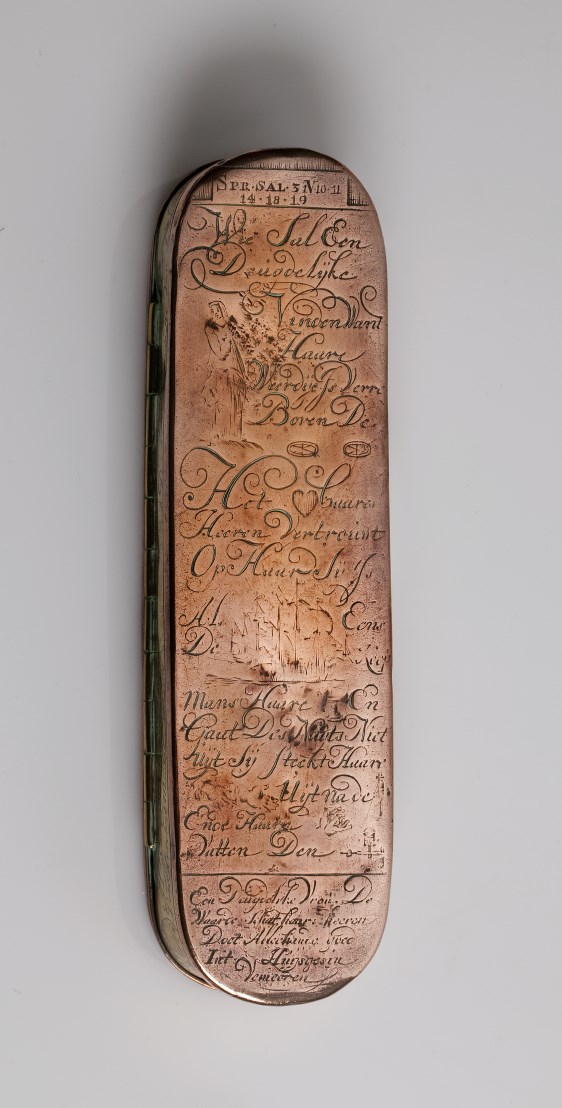 SPR·SAL·3 N10·11
14·18·19
Wie Sal Een
Deuodelÿke
Vinden Want
Haare
Weerdye Js Verre
Boven De
Het haare
Heeren Vertrouwt
Op Haar Sÿ Js
Als Eens
De
Mans Haare En
Gaut Des Nats Niet
Uÿt Sÿ Steekt Haare
Uÿt na de
Ende Haare
Vatten Den
Een Vrou De
Waarde Heeren
Doet goed
Int Huÿsgesin
Vemeeren